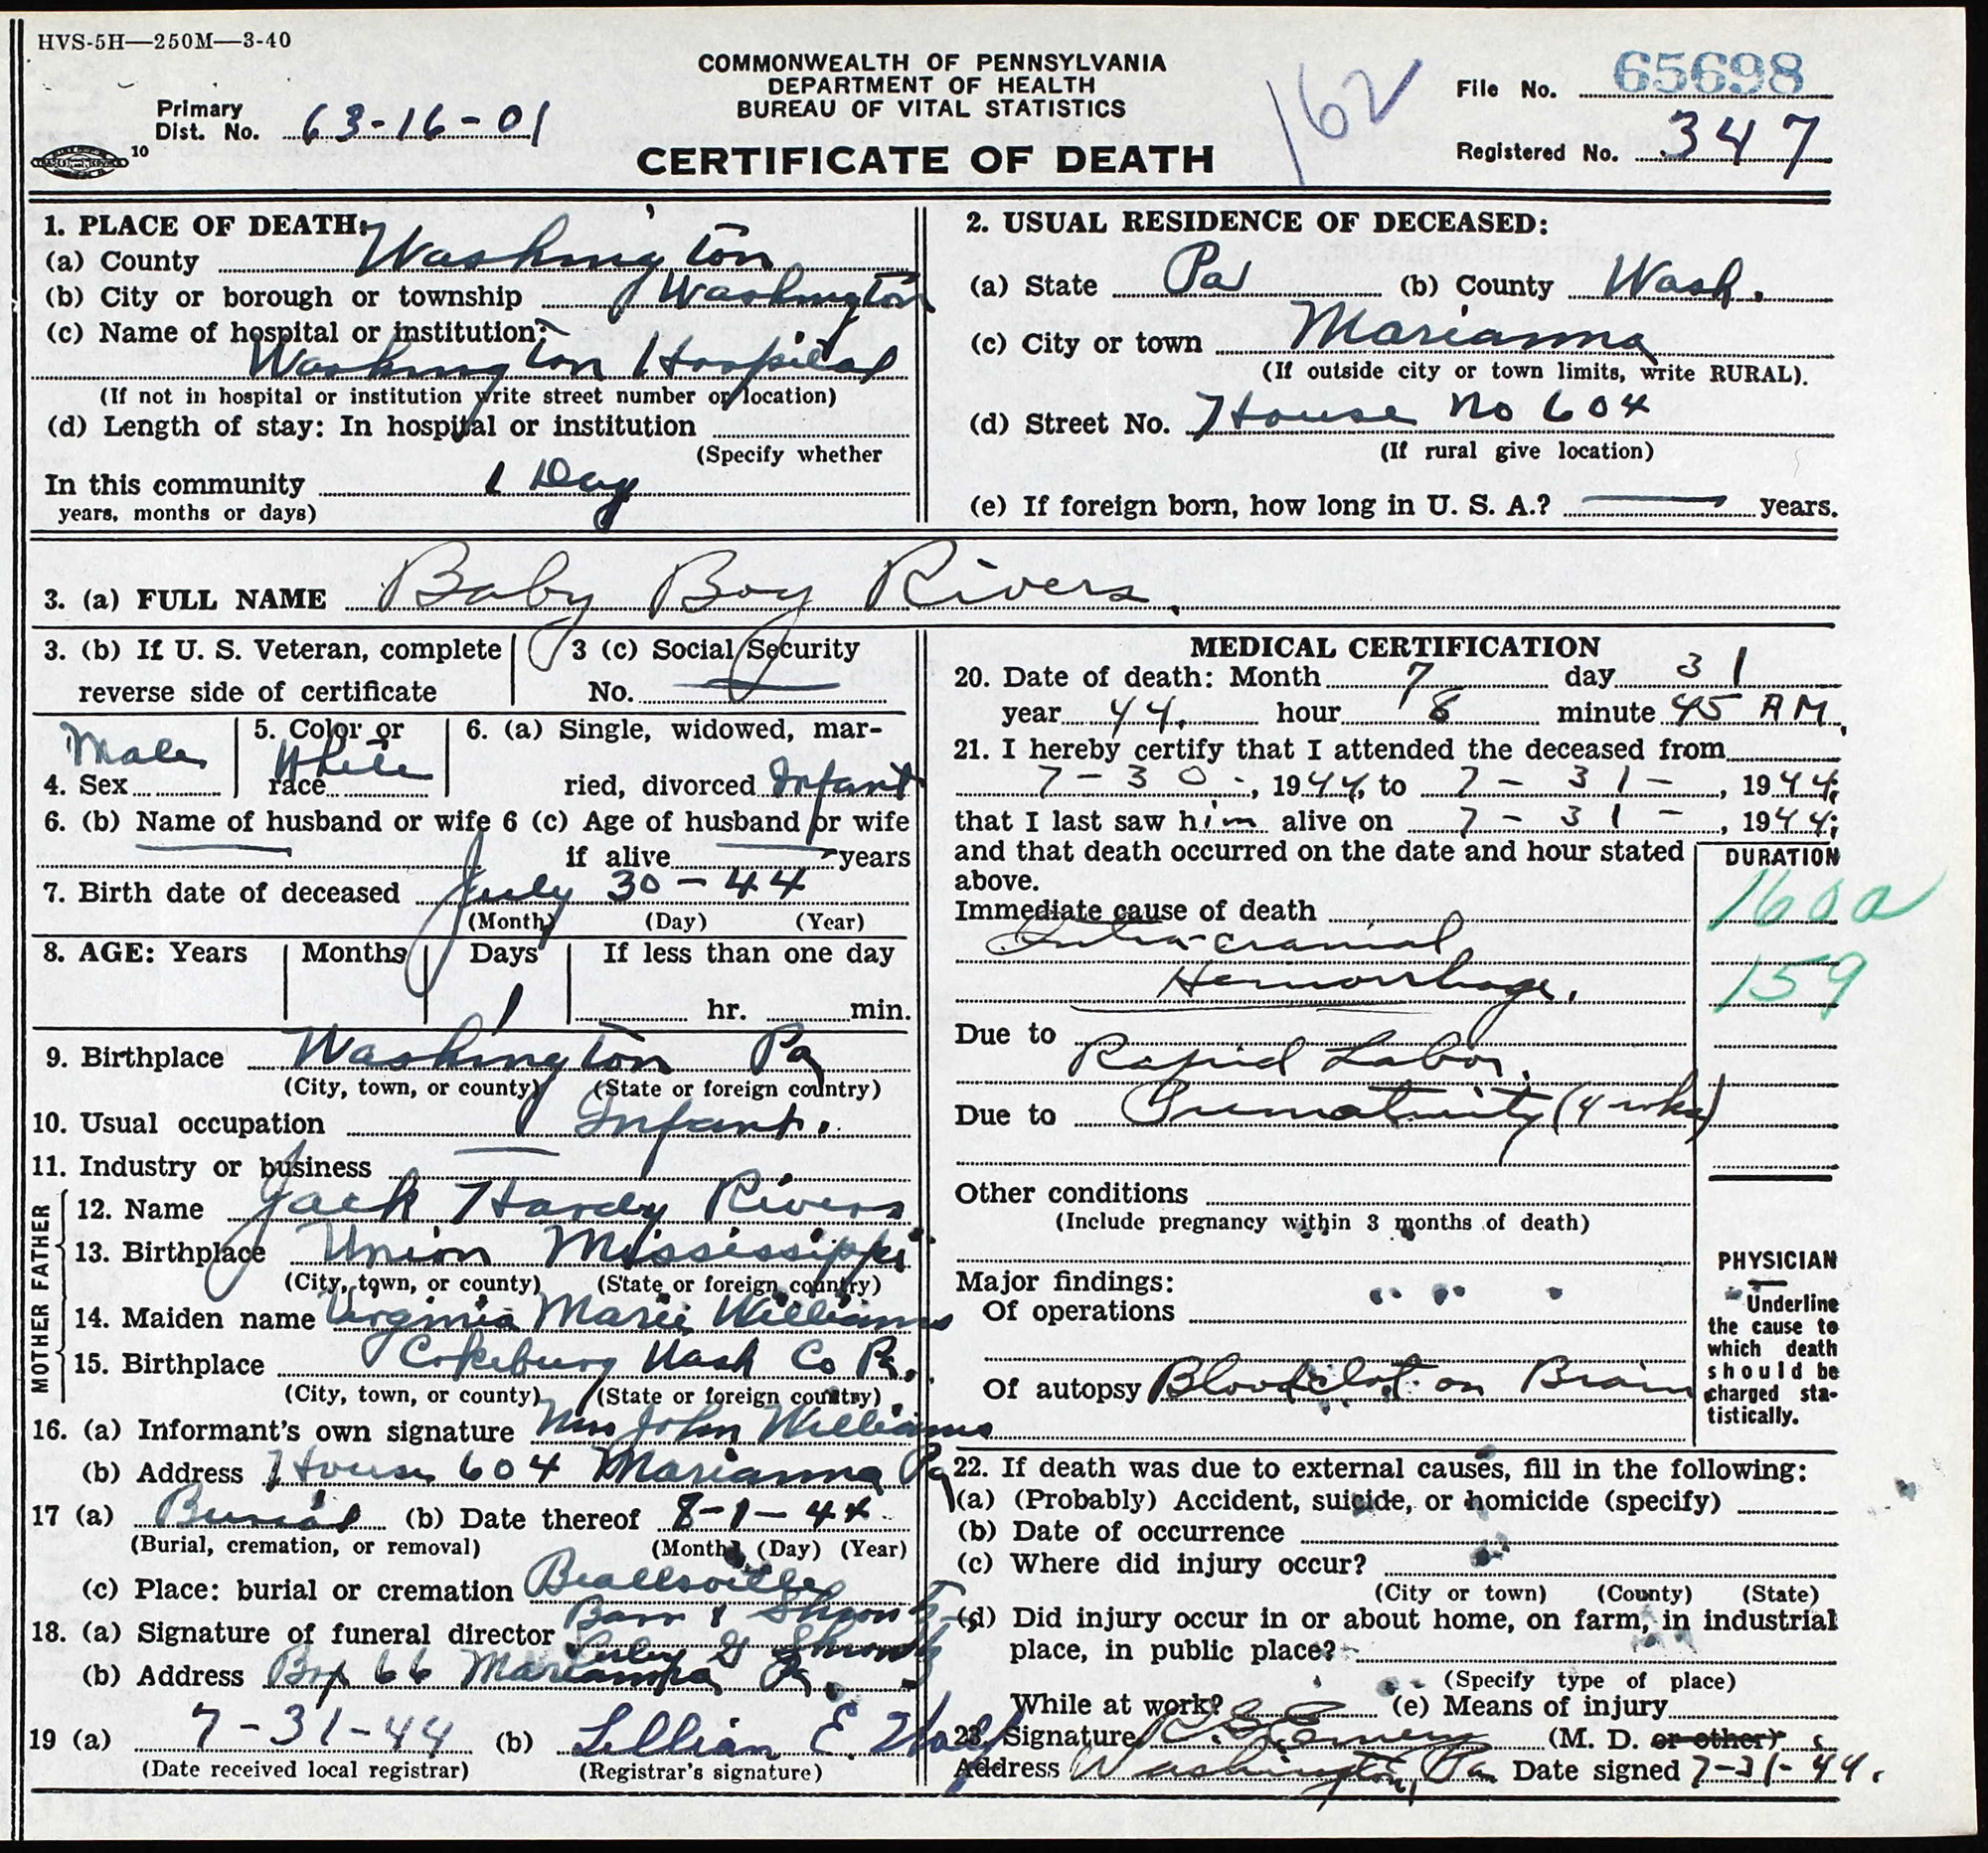 HVS-5H—250M—3-40
COMMONWEALTH OF PENNSYLVANIA
DEPARTMENT OF HEALTH
BUREAU OF VITAL STATISTICS
CERTIFICATE OF DEATH
162
File No. 65698
Registered No. 347
Primary
Dist. No. 63-16-01
10
1. PLACE OF DEATH:
(a) County Washington
(b) City or borough or township Washington
(c) Name of hospital or institution:
Washington Hospital
(If not in hospital or institution write street number or location)
(d) Length of stay: In hospital or institution
(Specify whether
In this community 1 Day
years, months or days)
2. USUAL RESIDENCE OF DECEASED:
(a) State Pa (b) County Wash.
(c) City or town Marianna
(If outside city or town limits, write RURAL).
(d) Street No. House No 604
(If rural give location)
(e) If foreign born, how long in U. S. A.? — years.
3. (a) FULL NAME Baby Boy Rivers.
3. (b) If U. S. Veteran, complete
reverse side of certificate
3 (c) Social Security
No. —
4. Sex Male
5. Color or
race White
6. (a) Single, widowed, mar-
ried, divorced Infant
6. (b) Name of husband or wife
—
6 (c) Age of husband or wife
if alive — years
7. Birth date of deceased July 30-44
(Month) (Day) (Year)
8. AGE: Years Months Days If less than one day
1 hr. min.
9. Birthplace Washington Pa
(City, town, or county) (State or foreign country)
10. Usual occupation Infant.
11. Industry or business —
FATHER
12. Name Jack Hardy Rivers
13. Birthplace Union Mississippi
(City, town, or county) (State or foreign country)
MOTHER
14. Maiden name Virginia Marie Williams
15. Birthplace Cokeburg Wash Co Pa.
(City, town, or county) (State or foreign country)
16. (a) Informant's own signature Mrs John Williams
(b) Address House 604 Marianna Pa
17 (a) Burial (b) Date thereof 8-1-44
(Burial, cremation, or removal) (Month) (Day) (Year)
(c) Place: burial or cremation Beallsville
18. (a) Signature of funeral director Barr &
(b) Address Box 66 Marianna Pa.
19 (a) 7-31-44 (b) Lillian E.
(Date received local registrar) (Registrar's signature)
MEDICAL CERTIFICATION
20. Date of death: Month 7 day 31
year 44. hour 8 minute 45 AM.
21. I hereby certify that I attended the deceased from
7-30-, 1944, to 7-31-, 1944;
that I last saw him alive on 7-31-, 1944;
and that death occurred on the date and hour stated
above.
DURATION
160a
159
Immediate cause of death
Intra-cranial
Hemorrhage.
Due to
Rapid Labor.
Due to Prematurity (4 wks)
Other conditions
(Include pregnancy within 3 months of death)
Major findings:
Of operations
Of autopsy Blood clot on Brain
PHYSICIAN
Underline
the cause to
which death
should be
charged sta-
tistically.
22. If death was due to external causes, fill in the following:
(a) (Probably) Accident, suicide, or homicide (specify)
(b) Date of occurrence
(c) Where did injury occur?
(City or town) (County) (State)
(d) Did injury occur in or about home, on farm, in industrial
place, in public place?
(Specify type of place)
While at work? (e) Means of injury
23. Signature (M. D. or other)
Address Washington, Pa Date signed 7-31-44.